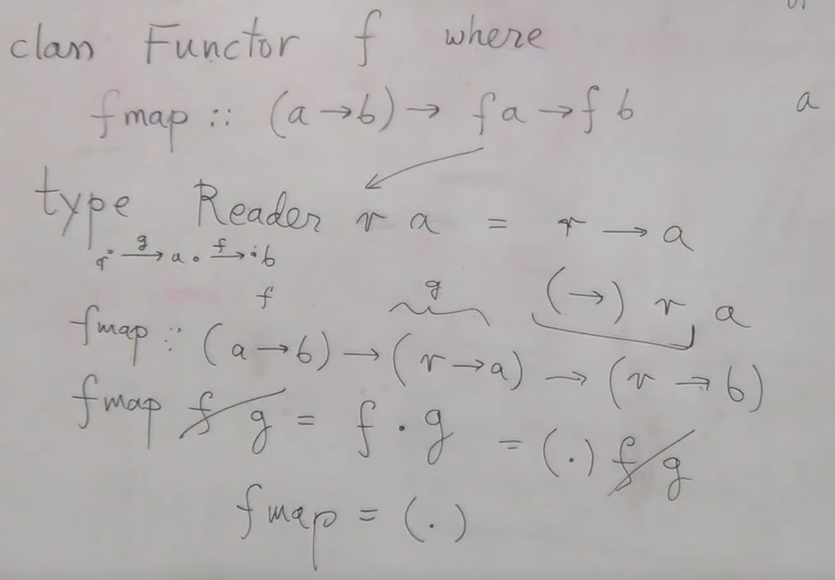 class Functor f where
fmap :: (a → b) → f a → f b
a
type Reader r a = r → a
r g→ a f→ b
f g (→) r a
fmap :: (a → b) → (r → a) → (r → b)
fmap f g = f . g = (.) f g
fmap = (.)